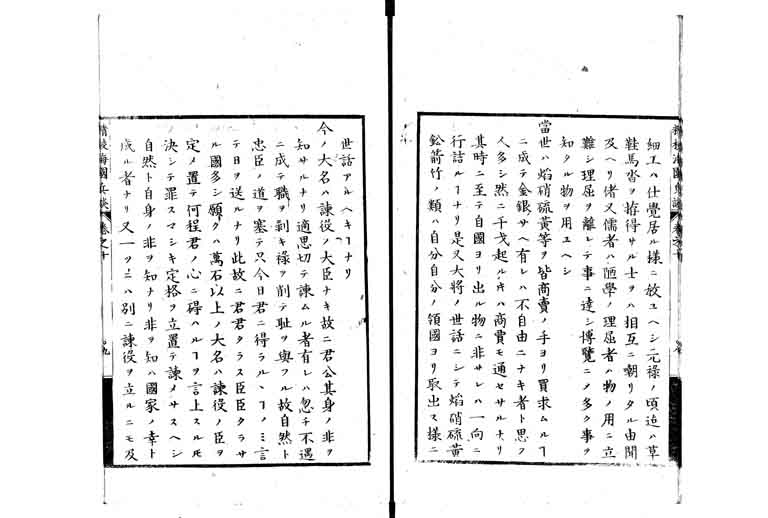 細工ハ仕覺居ル様ニ教ユヘシ元禄ノ頃迠ハ草
鞋馬沓ヲ拵得サル士ヲハ相互ニ嘲リタル由聞
及ヘリ偖又儒者ハ陋學ノ理屈者ハ物ノ用ニ立
難シ理屈ヲ離レテ事ニ達シ博覽ニノ多ク事ヲ
知タル物ヲ用ユヘシ
當世ハ焔硝硫黄等ヲ皆商賣ノ手ヨリ買求ムルヿ
ニ成テ金銀サヘ有レハ不自由ニナキ者ト思フ
人多シ然ニ干戈起ル𪜈ハ商賣モ通セサルナリ
其時ニ至テ自国ヨリ出ル物ニ非サレハ一向ニ
行詰ルヿナリ是又大將ノ世話ニシテ焔硝硫黄
鈆箭竹ノ類ハ自分自分ノ領國ヨリ取出ス様ニ
精校海國兵談 卷之十
世話アルヘキヿナリ
今ノ大名ハ諫役ノ大臣ナキ故ニ君公其身ノ非ヲ
知サルナリ適思切テ諫ムル者有レハ忽チ不遇
ニ成テ職ヲ剥キ禄ヲ削テ耻ヲ與フル故自然ト
忠臣ノ道ヲ塞テ只今日君ニ得ラルヽヿノミ言
テ日ヲ送ルナリ此故ニ君君タラス臣臣タラサ
ル國多シ願クハ萬石以上ノ大名ハ諫役ノ臣ヲ
定メ置テ何程君ノ心ニ碍ハルヿヲ言上スルモ
決シテ罪スマシキ定格ヲ立置テ諫メサスヘシ
自然ト自身ノ非ヲ知ナリ非ヲ知ハ國家ノ幸ト
成ル者ナリ又一ツニハ別ニ諫役ヲ立ルニモ及
精校海國兵談 卷之十